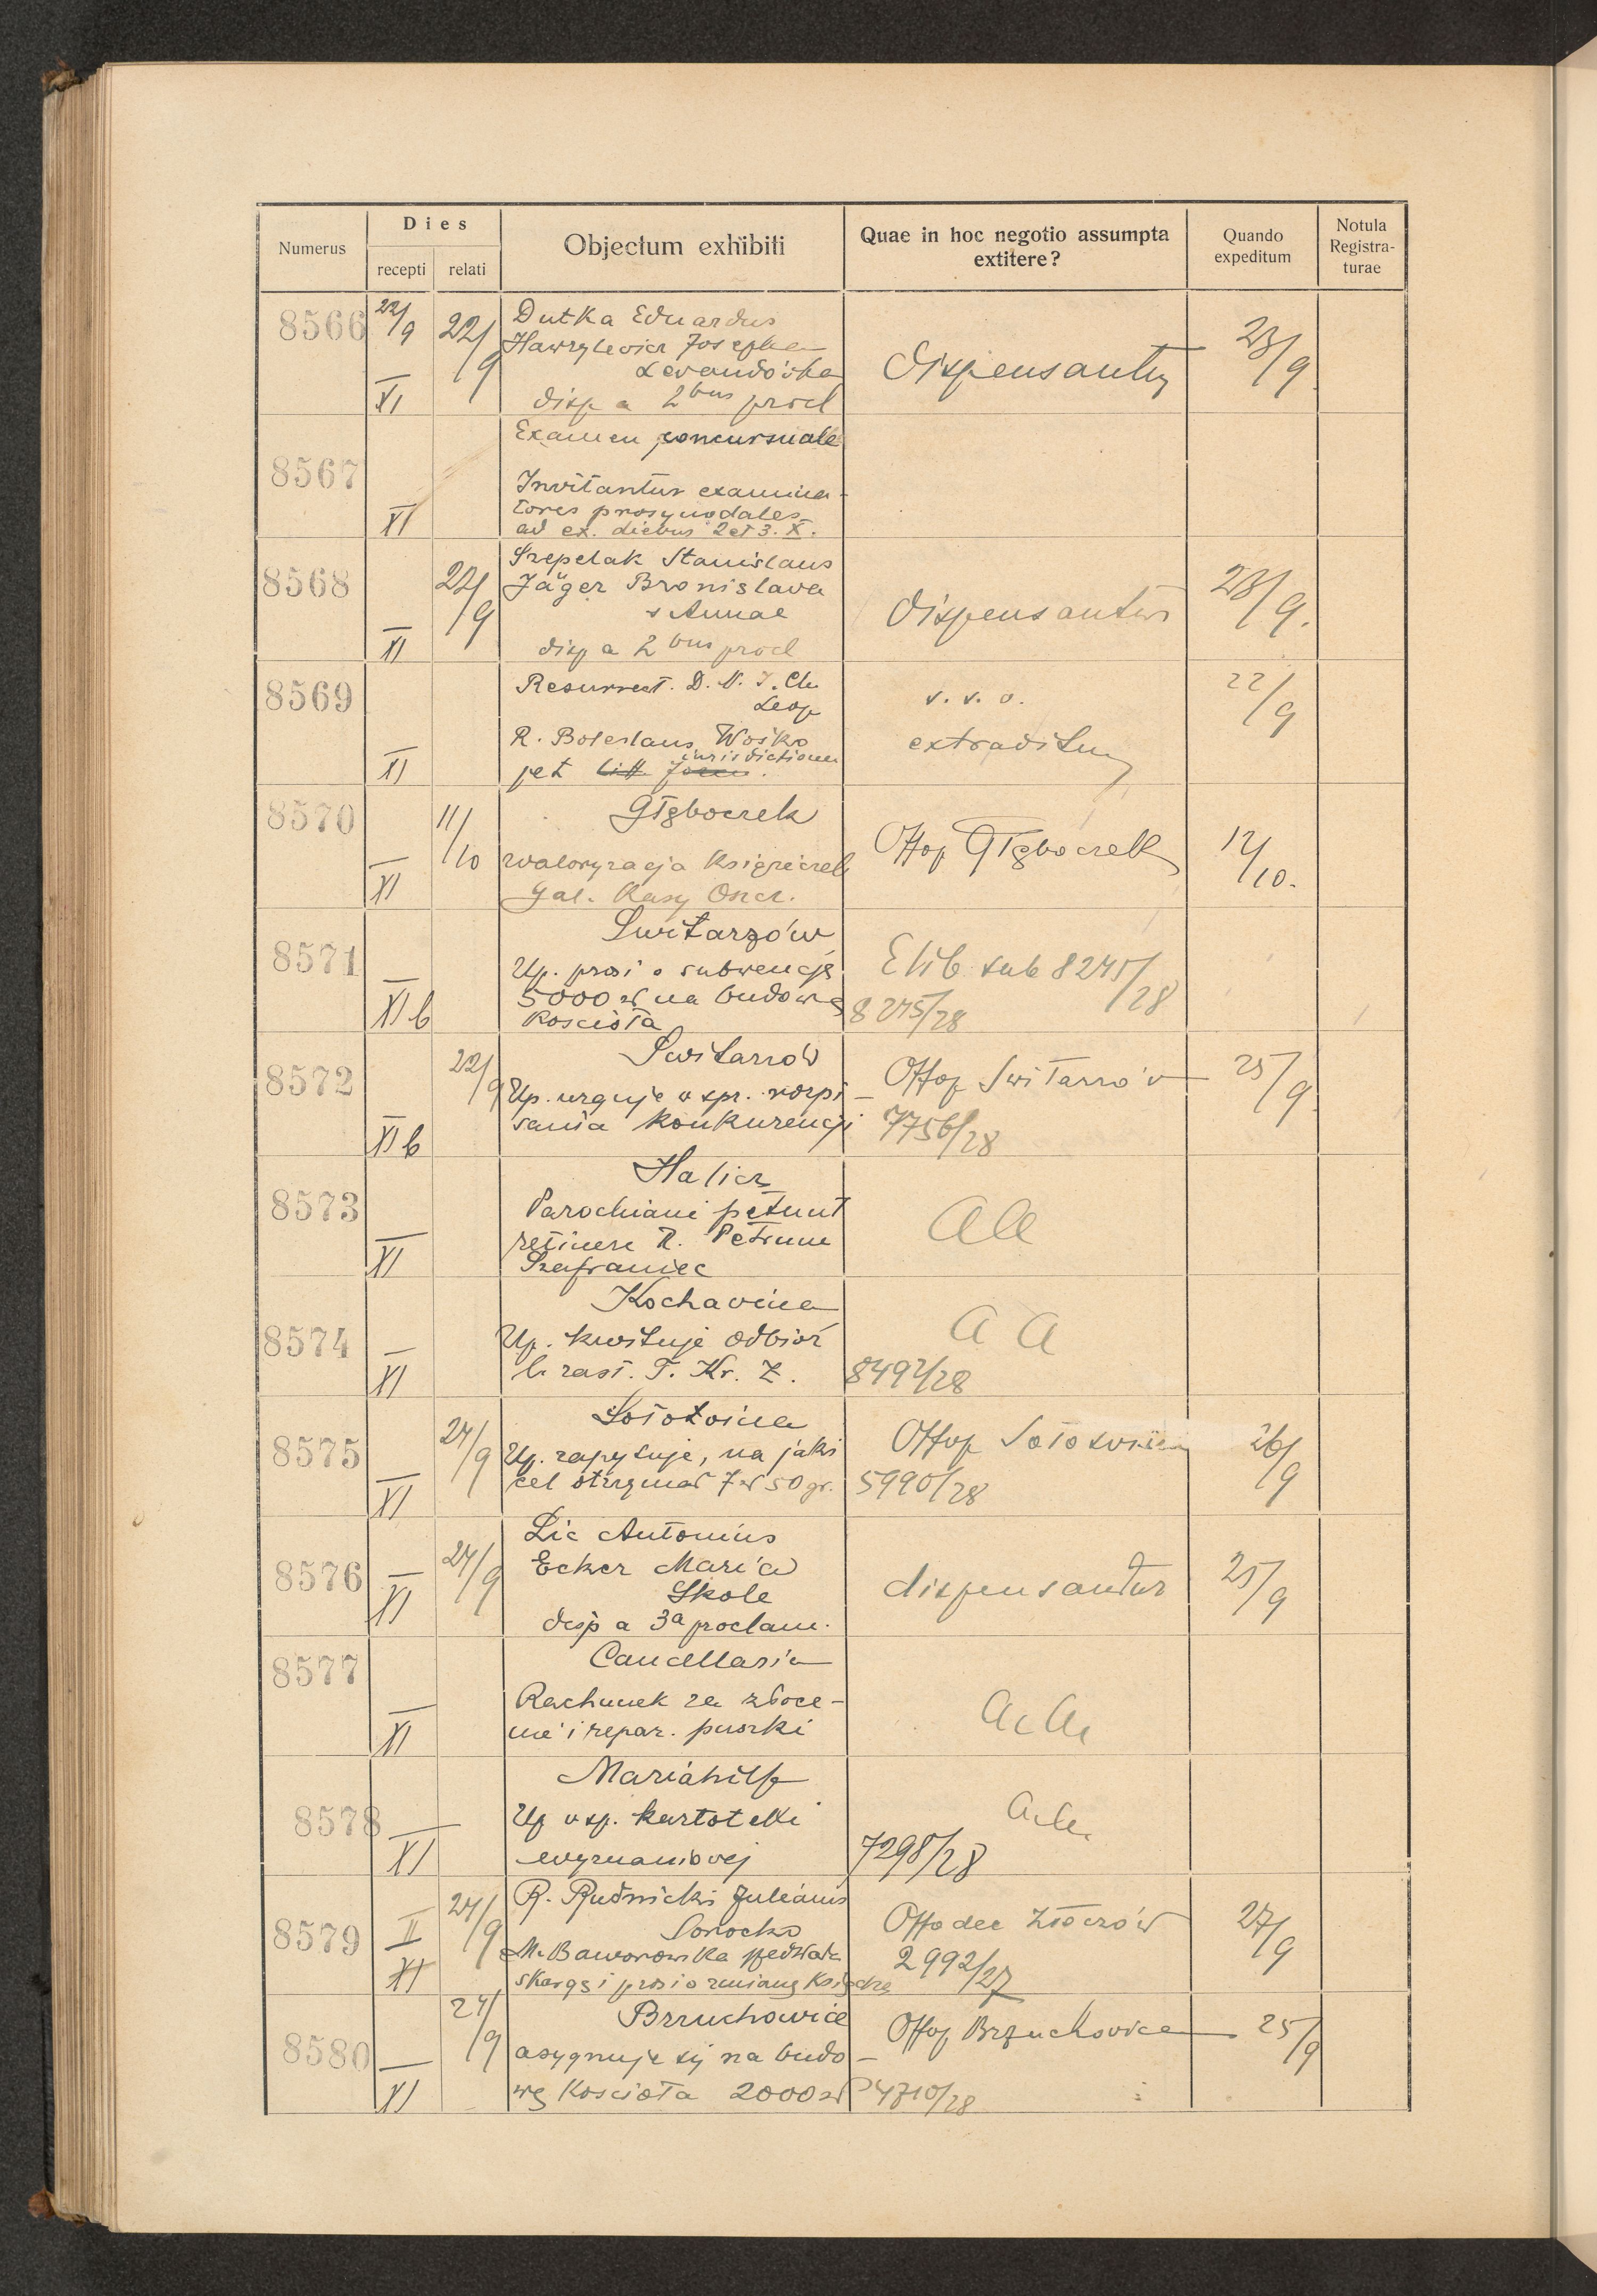 Numerus
Dies
recepti
relati
Objectum exhibiti
Quae in hoc negotio assumpta
extitere?
Quando
expeditum
Notula
Registra-
turae
8566
22/9
XI
22/9
Dutka Eduardus
Hawrylevicz Josepha
Levandówka
disp a 2bus procl
dispensantur
23/9
8567
XI
Examen concursuale
Invitantur examina-
tores prosynodales
ad ex. diebus 2 et 3. X.
8568
XI
22/9
Szepelak Stanislaus
Jäger Bronislava
s Annae
disp a 2bus procl
dispensantur
23/9.
8569
XI
Resurrect. D. N. J. Ch
Leop
R. Boleslaus Wośko
jurisdictionem
pet litt
v. s. o.
extraditum
22/9
8570
XI
11/10
Głęboczek
waloryzacja książeczek
Gal. Kasy Oszcz.
Offop Głęboczek
12/10.
8571
XI b
Switarzów
Up. prosi o subwencję
5000 zł na budowę
Kościoła
E lib sub 8275/28
8275/28
8572
XI b
22/9
Switarzów
Up. urguje w spr. rozpi-
sania konkurencji
Offop Switarzów
7756/28
25/9
8573
XI
Halicz
Parochiani petunt
retinere R. Petrum
Szafraniec
aa
8574
XI
Kochavina
Up. kwituje odbiór
l. zast. T. Kr. Z.
a a
8492/28
8575
XI
24/9
Sołotvina
Up. zapytuje, na jaki
cel otrzymał 7 zł 50 gr.
Offop Sołotvina
5990/28
26/9
8576
XI
24/9
Lic Antonius
Ecker Maria
Skole
disp a 3a proclam.
dispensantur
25/9
8577
XI
Cancellaria
Rachunek za złoce-
nie i repar. puszki
a a
8578
XI
Mariahilf
Up w sp. kartoteki
wyznaniovej
a a
7298/28
8579
II
XI
24/9
R. Rudnicki Julianus
Sorocko
M. Baworowska
skargę i prosi o zmianę Księdza
Offo dec Złoczów
2992/27
27/9
8580
XI
24/9
Brzuchowice
asygnuje się na budo-
wę Kościoła 2000 zł
Offop Brzuchovice
4710/28
25/9